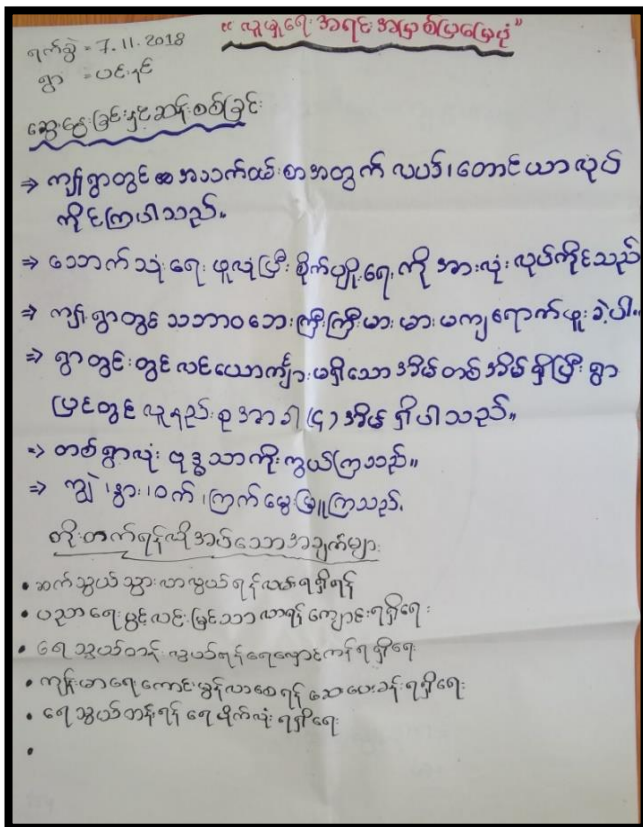 "လူမှုရေး အရင်းအမြစ်ပြမြေပုံ"
ရက်စွဲ = 7.11.2018
ရွာ = ပင်းနင်
ဆွေးနွေးခြင်းနှင့်ဆန်းစစ်ခြင်း
⇒ ကျွန်ုပ်ရွာတွင် အသက်မွေးစာအတွက် လယ်၊ တောင်ယာ လုပ်
ကိုင်ကြပါသည်။
⇒ သောက်သုံးရေ ဖူလုံပြီး စိုက်ပျိုးရေးကို အားလုံး လုပ်ကိုင်သည်
⇒ ကျွန်ုပ်ရွာတွင် သဘာဝဘေးကြီးကြီးမားမား မကျရောက်ဖူးခဲ့ပါ။
⇒ ရွာတွင်းတွင် လင်ယောက်ျားမရှိသော အိမ်တစ်အိမ် ရှိပြီး ရွာ
ပြင်တွင် လူနည်းစု အာခါ (၄) အိမ် ရှိပါသည်။
⇒ တစ်ရွာလုံး ဗုဒ္ဓသာကိုးကွယ်ကြသည်။
⇒ ကျွဲ၊ နွား၊ ဝက်၊ ကြက်မွေးမြူကြသည်.
တိုးတက်ရန်လိုအပ်သောအချက်များ
• ဆက်သွယ်သွားလာလွယ်ရန်လမ်းရရှိရန်
• ပညာရေးပွင့်လင်းမြင်သာလာရန် ကျောင်းရရှိရေး
• ရေသွယ်တန်းလွယ်ရန်ရေလှောင်ကန်ရရှိရေး
• ကျန်းမာရေးကောင်းမွန်လာစေရန် ဆေးပေးခန်းရရှိရေး
• ရေသွယ်တန်းရန် ရေပိုက်လုံးရရှိရေး
•